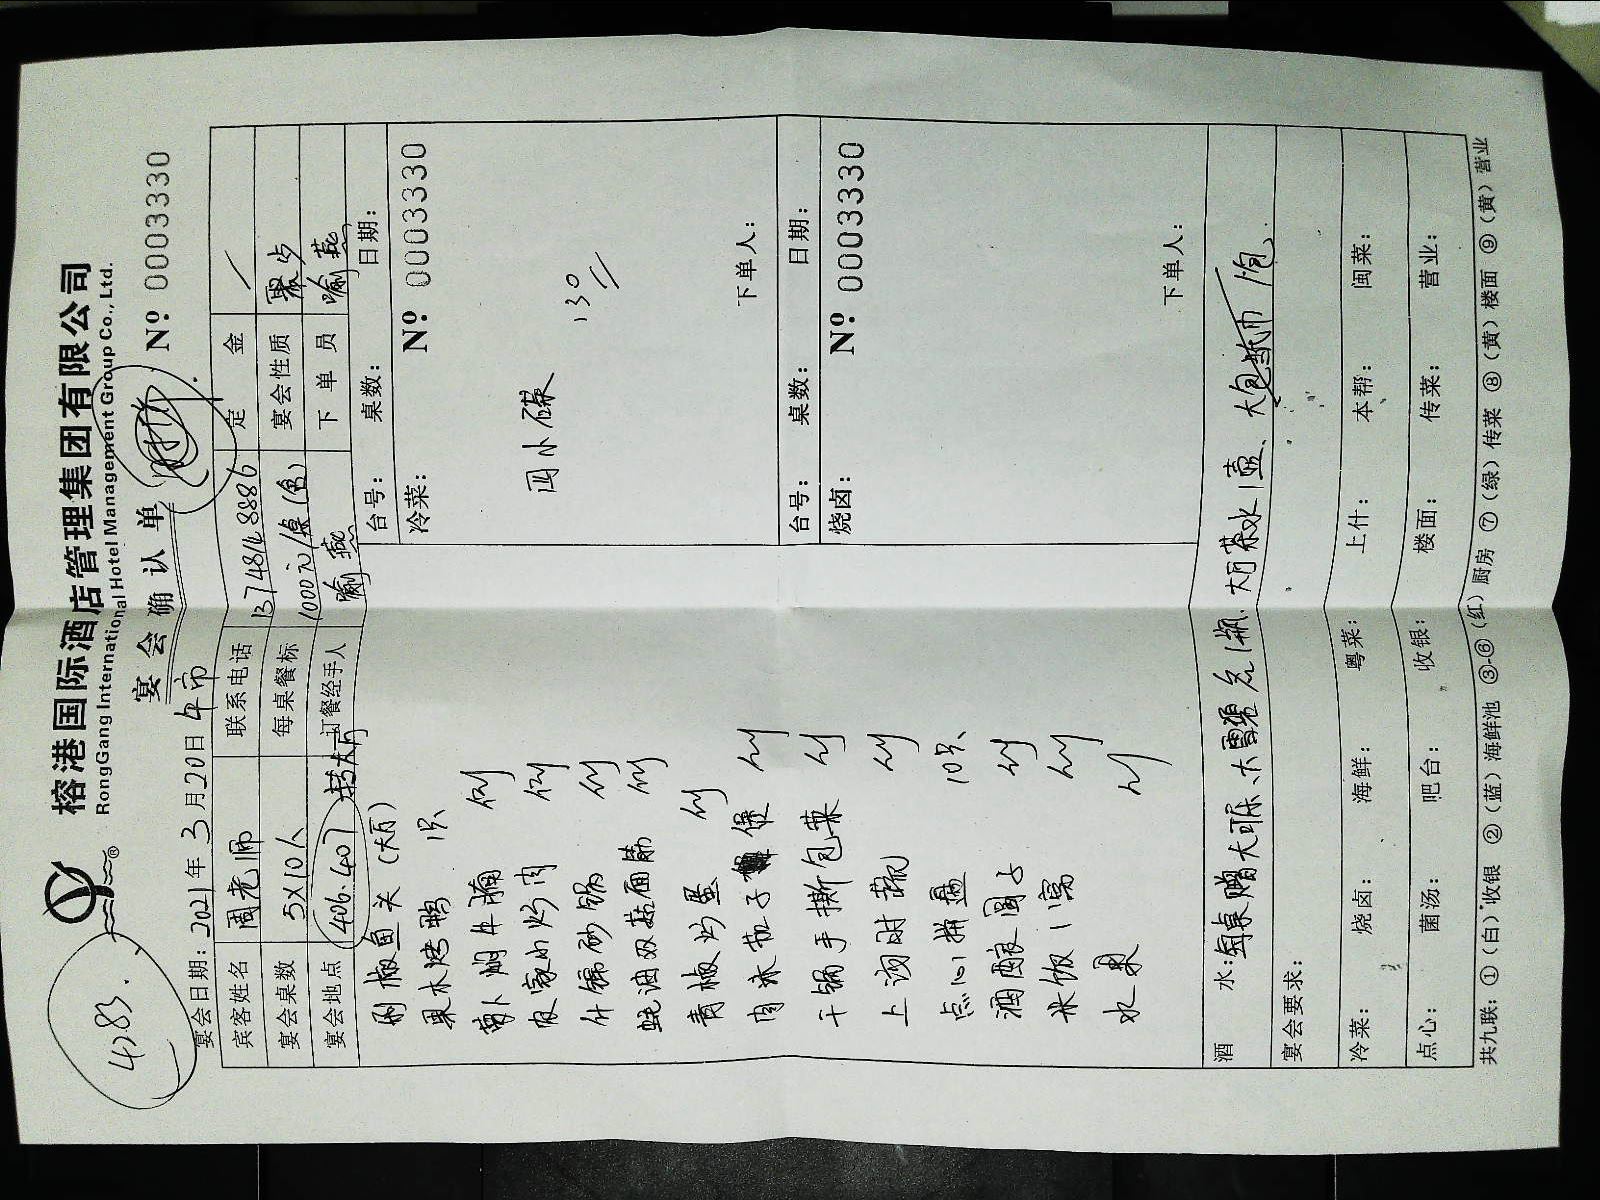 榕港国际酒店管理集团有限公司
RongGang International Hotel Management Group Co., Ltd.
宴会确认单 Nº 0003330
宴会日期：2021年3月20日 午市
宾客姓名 周老师 联系电话 13748148886 定金 /
宴会桌数 5×10人 每桌餐标 1000元/桌 宴会性质
宴会地点 406.407 订餐经手人 喻燕 下单员 喻燕
台号： 桌数： 日期：
冷菜： Nº 0003330
四小碟
130
下单人：
台号： 桌数： 日期：
烧卤： Nº 0003330
下单人：
剁椒鱼头（大厅）
果木烤鸭 1只
萝卜焖牛腩 例
农家小炒肉 例
什锦砂锅 例
蚝油双菇面筋 例
青椒炒蛋 例
肉末茄子煲 例
干锅手撕包菜 例
上汤时蔬 例
点心拼盘 10只
酒酿圆子 例
米饭1窝 例
水果 例
酒水：每桌赠大可乐、大雪碧各1瓶、大厅茶水1壶、大包纸巾1包.
宴会要求：
冷菜： 烧卤： 海鲜： 粤菜： 上什： 本帮： 闽菜：
点心： 菌汤： 吧台： 收银： 楼面： 传菜： 营业：
共九联：①（白）收银 ②（蓝）海鲜池 ③-⑥（红）厨房 ⑦（绿）传菜 ⑧（黄）楼面 ⑨（黄）营业